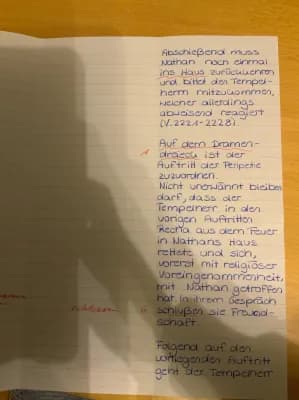 Abschießend muss
Nathan noch einmal
ins Haus zurückkehren
und bittet den Tempel-
herrn mitzukommen,
welcher allerdings
abweisend reagiert
(V. 2221-2228).
Auf dem Dramen-
dreieck ist der
Auftritt der Peripetie
zuzuordnen.
Nicht unerwähnt bleiben
darf, dass der
Tempelherr in den
vorigen Auftritten
Recha aus dem Feuer
in Nathans Haus
rettete und sich,
vorerst mit religiöser
Voreingenommenheit,
mit Nathan getroffen
hat. In ihrem Gespräch
schlußen sie Freund-
schaft.
Folgend auf den
vorliegenden Auftritt
geht der Tempelherr